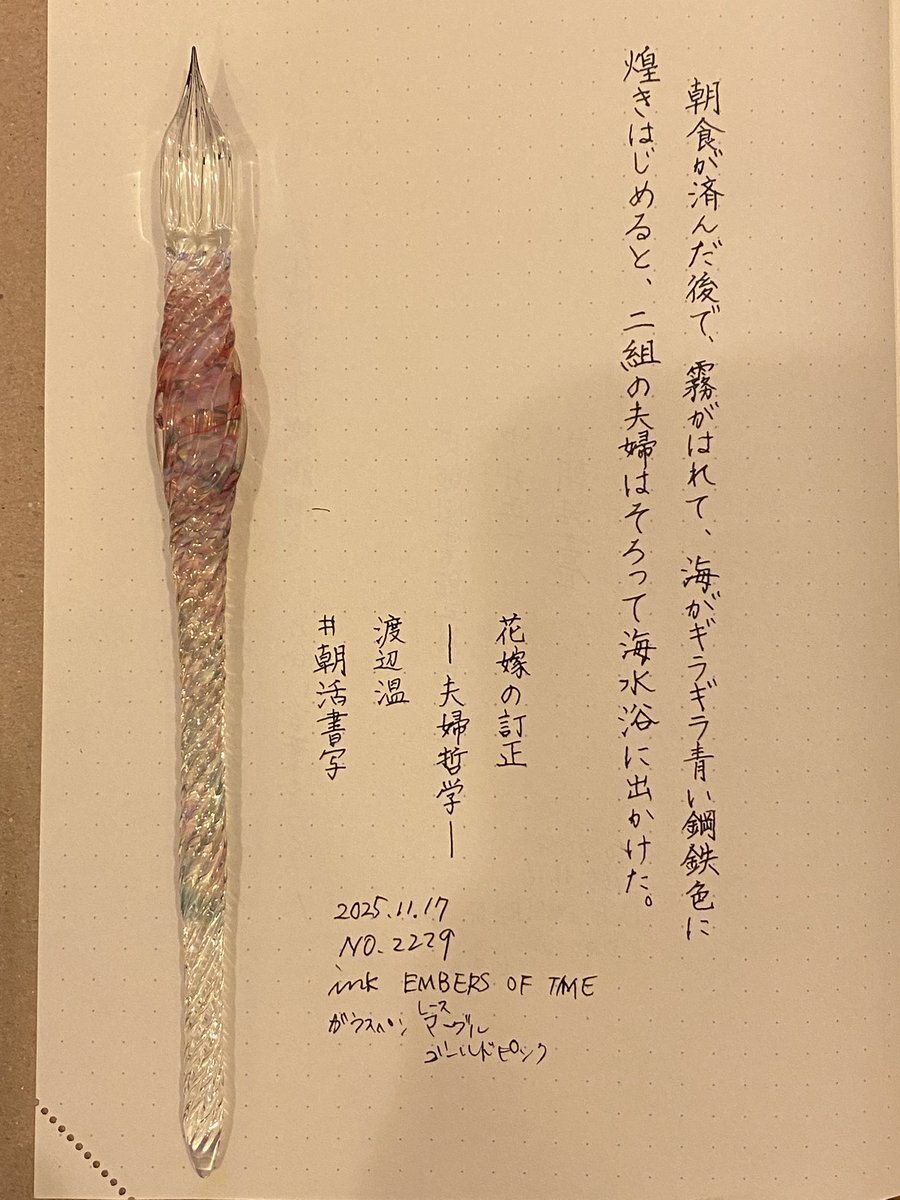 朝食が済んだ後で、霧がはれて、海がギラギラ青い鋼鉄色に
煌きはじめると、二組の夫婦はそろって海水浴に出かけた。
花嫁の訂正
―夫婦哲学―
渡辺温
#朝活書写
2025.11.17
NO.2229
ink EMBERS OF TIME
ガラスペン レース
マーブル
ゴールドピンク